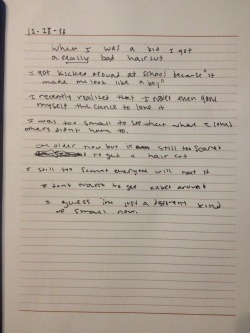 11-28-18
When I was a kid I got
a really bad hair cut
I got kicked around at school because "it
make me look like a boy"
I recently realized that I never even gave
myself the chance to love it
I was too small to see that what I loved
others didn't have to.
Im older now but still too scared
to get a hair cut
I still too scared everyone will hate it
I don't want to get kicked around
I guess im just a different kind
of small now.